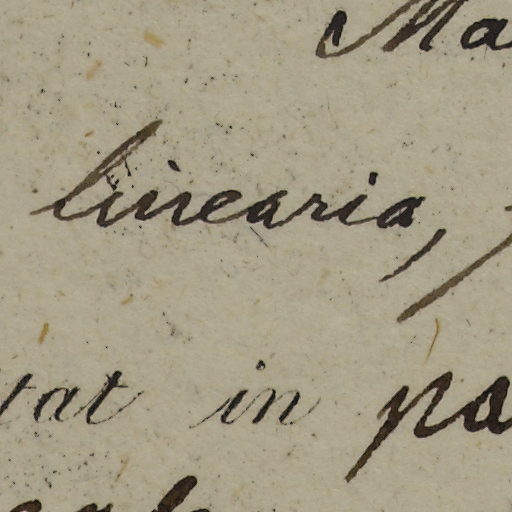 Ma
linearia,
tat in pa